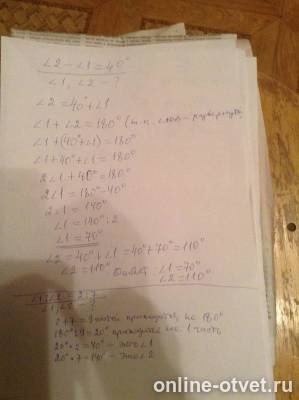 ∠2 - ∠1 = 40°
∠1, ∠2 - ?
∠2 = 40° + ∠1
∠1 + ∠2 = 180° (т.к.
∠1 + (40° + ∠1) = 180°
∠1 + 40° + ∠1 = 180°
2∠1 + 40° = 180°
2∠1 = 180° - 40°
2∠1 = 140°
∠1 = 140° : 2
∠1 = 70°
∠2 = 40° + ∠1 = 40° + 70° = 110°
∠2 = 110° Ответ: ∠1 = 70°
∠2 = 110°
2 + 7 = 9 частей приходится на 180°
180° : 9 = 20° приходится на 1 часть
20° * 2 = 40° - это ∠1
20° * 7 = 140° - это ∠2
online-otvet.ru